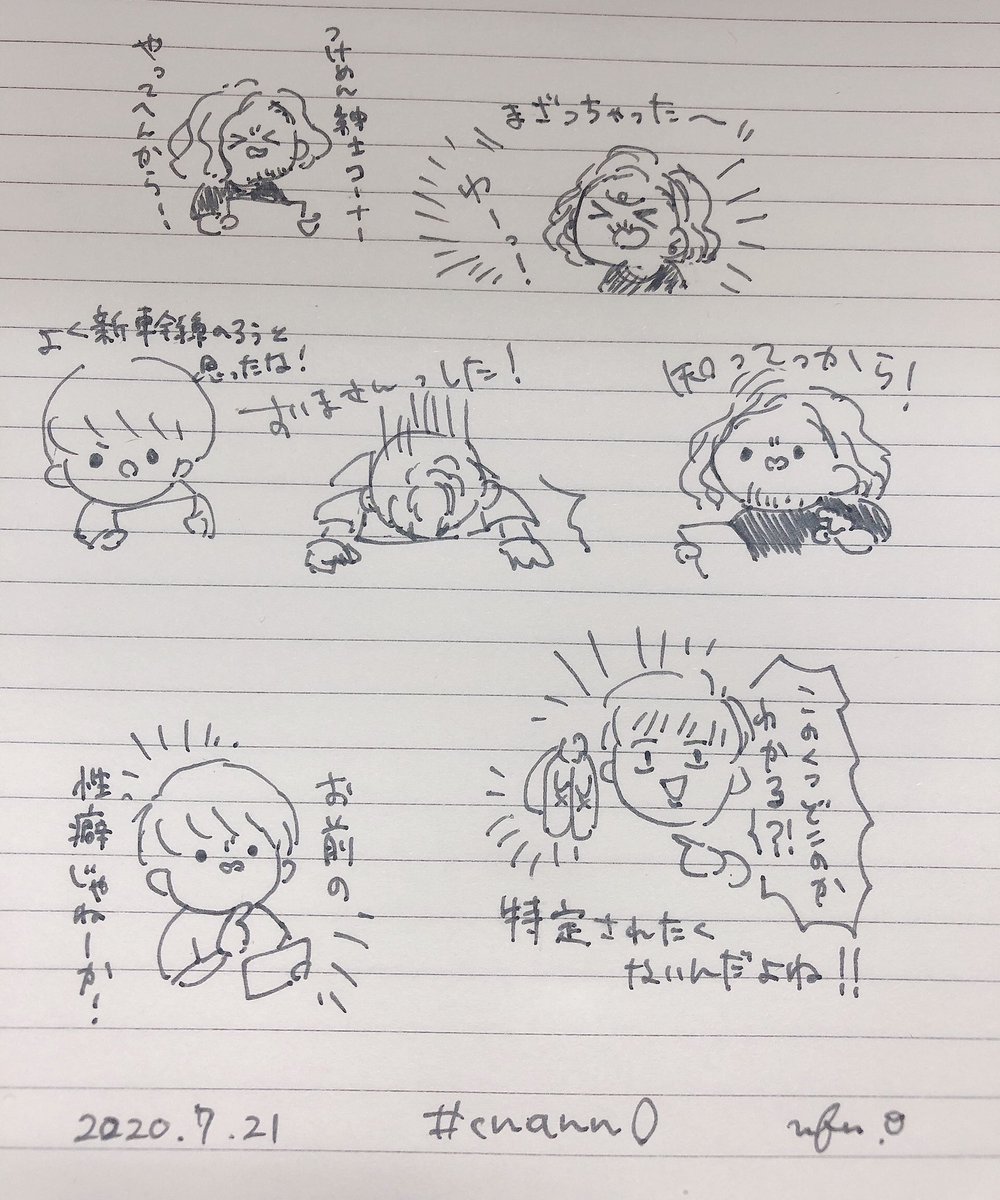 つけめん紳士コーナー
やってへんから!
まざっちゃった〜!!
わーっ!
よく新幹線のろうと
思ったな!
すいませんっした!
知ってっから!
お前の
性癖じゃねーか!
このくつどこのか
わかる?!
特定されたく
ないんだよね!!
2020.7.21
#cnann0